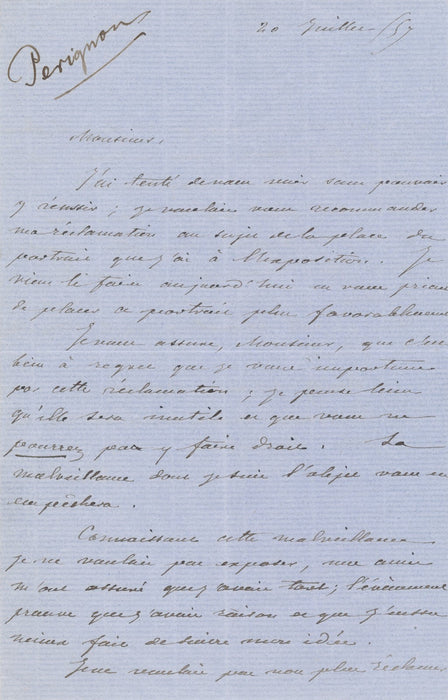 Perignon
20 Juillet /57
Monsieur,
J'ai tenté de vous voir sans pouvoir
y réussir ; je voulais vous recommander
ma réclamation au sujet de la place du
portrait que j'ai à l'Exposition. Je
viens le faire aujourd'hui en vous priant
de placer ce portrait plus favorablement
Je vous assure, Monsieur, que c'est
bien à regret que je vous importune
par cette réclamation ; je pense bien
qu'elle sera inutile et que vous ne
pourrez pas y faire droit. La
malveillance dont je suis l'objet vous en
empêchera.
Connaissant cette malveillance
je ne voulais pas exposer, mes amis
m'ont assuré que j'avais tort ; l'évènement
prouve que j'avais raison et que j'eusse
mieux fait de suivre mon idée.
Je ne voulais pas non plus réclamer